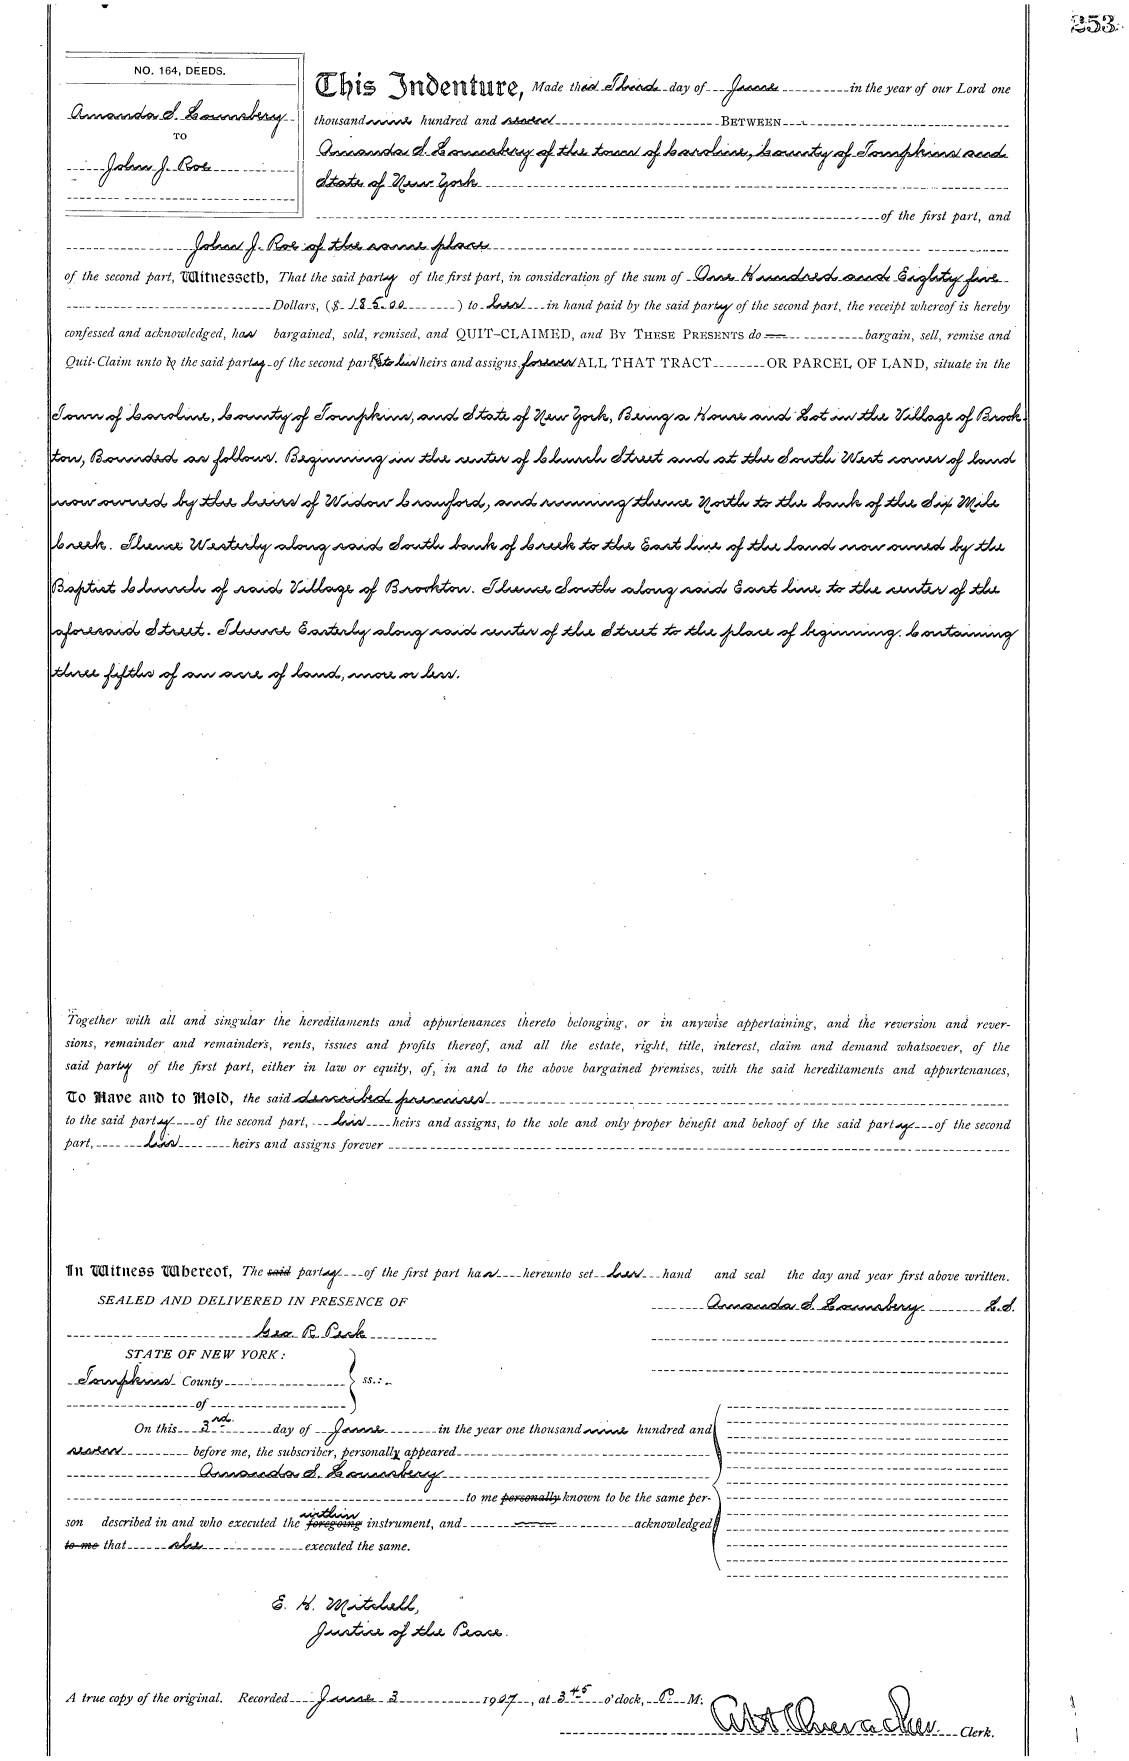 253
NO. 164, DEEDS.
Amanda S. Lounsbery
TO
John J. Roe
This Indenture, Made the Third day of June in the year of our Lord one
thousand nine hundred and seven BETWEEN
Amanda S. Lounsbery of the town of Caroline, County of Tompkins and
State of New York
of the first part, and
John J. Roe of the same place
of the second part, Witnesseth, That the said party of the first part, in consideration of the sum of One Hundred and Eighty five
Dollars, ($ 185.00 ) to her in hand paid by the said party of the second part, the receipt whereof is hereby
confessed and acknowledged, has bargained, sold, remised, and QUIT-CLAIMED, and BY THESE PRESENTS do bargain, sell, remise and
Quit-Claim unto the said party of the second part, & to his heirs and assigns forever ALL THAT TRACT OR PARCEL OF LAND, situate in the
Town of Caroline, County of Tompkins, and State of New York, Being a House and Lot in the Village of Brook-
ton, Bounded as follows. Beginning in the center of Church Street and at the South West corner of land
now owned by the heirs of Widow Cranford, and running thence North to the bank of the Six Mile
Creek. Thence Westerly along said South bank of Creek to the East line of the land now owned by the
Baptist Church of said Village of Brookton. Thence South along said East line to the center of the
aforesaid Street. Thence Easterly along said center of the Street to the place of beginning. Containing
three fifths of an acre of land, more or less.
Together with all and singular the hereditaments and appurtenances thereto belonging, or in anywise appertaining, and the reversion and rever-
sions, remainder and remainders, rents, issues and profits thereof, and all the estate, right, title, interest, claim and demand whatsoever, of the
said party of the first part, either in law or equity, of, in and to the above bargained premises, with the said hereditaments and appurtenances,
To Have and to Hold, the said described premises
to the said party of the second part, his heirs and assigns, to the sole and only proper benefit and behoof of the said party of the second
part, his heirs and assigns forever
In Witness Whereof, The said party of the first part has hereunto set her hand and seal the day and year first above written.
SEALED AND DELIVERED IN PRESENCE OF
Amanda S. Lounsbery L.S.
Geo. R. Peck
STATE OF NEW YORK:
Tompkins County ss.:
of
On this 3rd. day of June in the year one thousand nine hundred and
seven before me, the subscriber, personally appeared
Amanda S. Lounsbery
to me personally known to be the same per-
within
son described in and who executed the foregoing instrument, and acknowledged
to me that she executed the same.
E. H. Mitchell,
Justice of the Peace.
A true copy of the original. Recorded June 3 1907, at 3 45 o'clock, P. M.
Clerk.